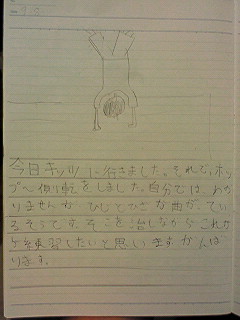 今日キッツに行きました。それで、ホッ
プへ側転をしました。自分では、わか
りませんが ひじとひざが曲がってい
るそうです。そこを治しながらこれか
ら練習したいと思います。がんば
ります。